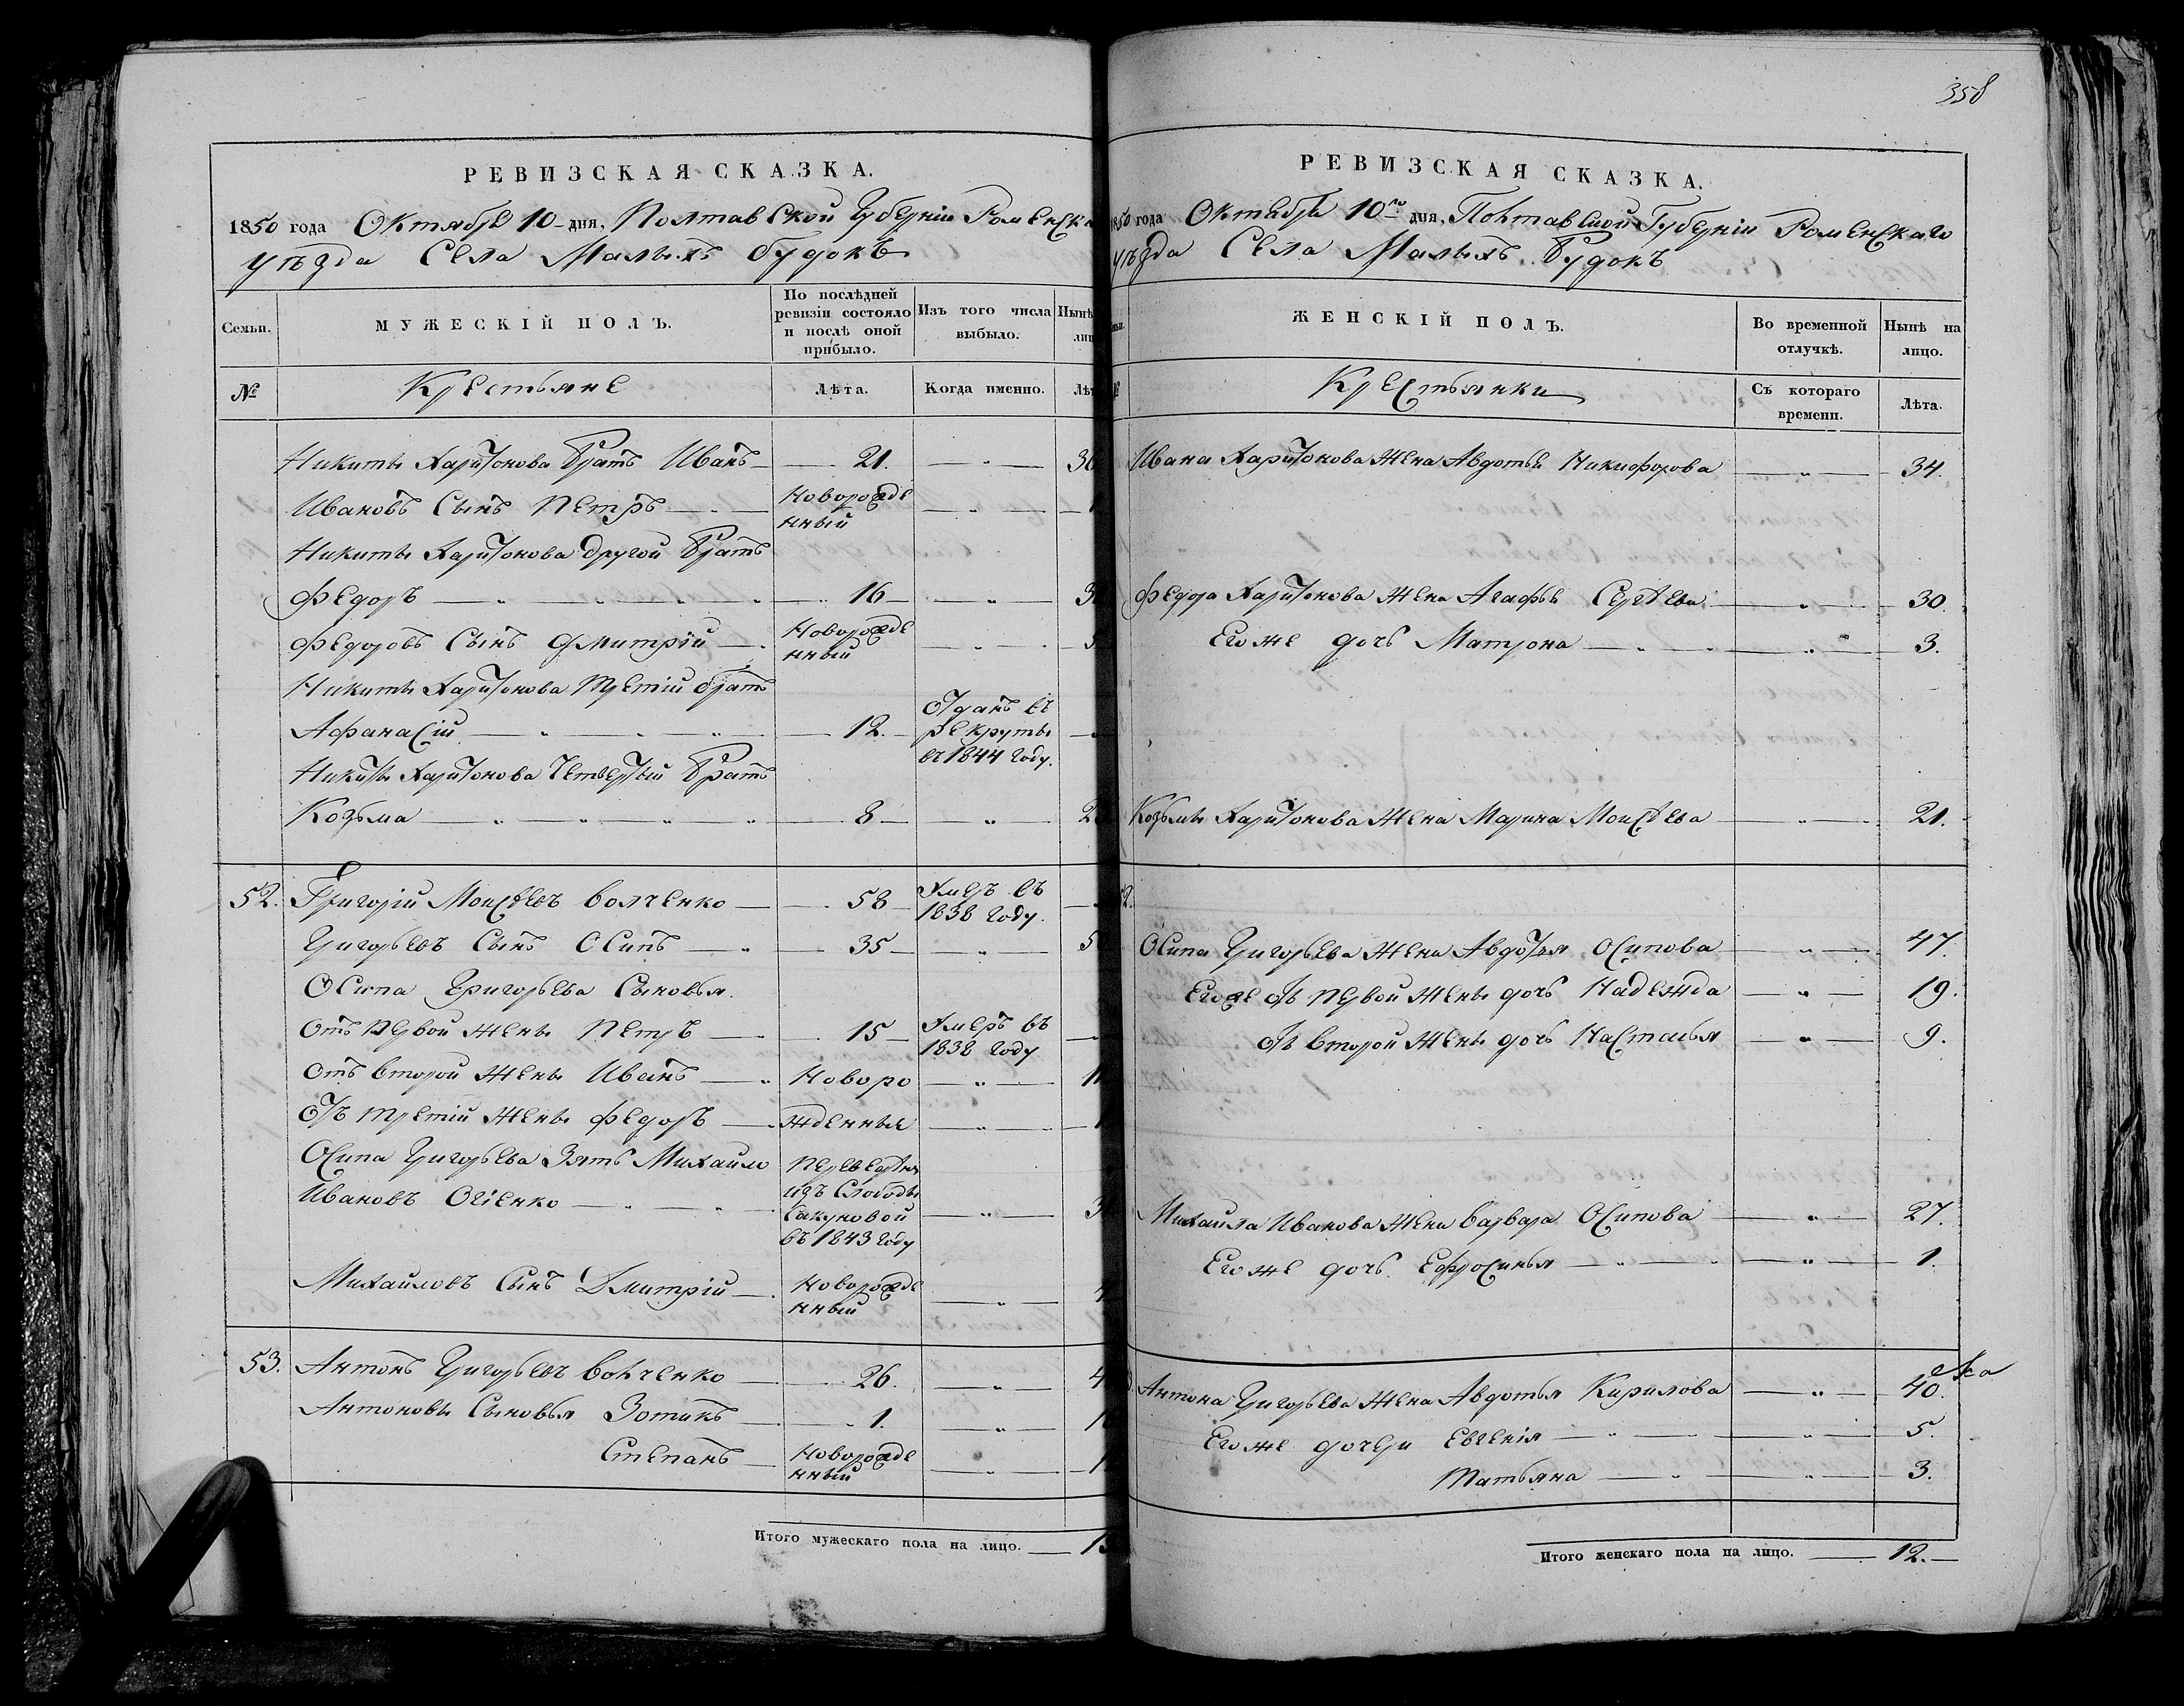 РЕВИЗСКАЯ СКАЗКА.
1850 года Октября 10 дня, Полтавской Губерніи Роменска
уѣзда Села Малыхъ Будокъ
Семьи.
МУЖЕСКІЙ ПОЛЪ.
По послѣдней ревизіи состояло и послѣ оной прибыло.
Изъ того числа выбыло.
Нынѣ
лиц
№
Крестьяне
Лѣта.
Когда именно.
Лѣт
Никиты Харитонова братъ Иванъ 21. 36
Ивановъ Сынъ Петръ Новорожде
нный
Никиты Харитонова другой братъ
Федоръ 16 3
Федоровъ Сынъ Дмитрій Новорожде
нный
Никиты Харитонова третій братъ
Афанасій 12. Отданъ въ
рекруты
въ 1844 году.
Никиты Харитонова четвертый братъ
Козьма 8 2
52. Григорій Моисѣевъ Волченко 58 Умеръ въ
1838 году.
Григорьевъ Сынъ Осипъ 35 5
Осипа Григорьева Сыновья
отъ первой жены Петръ 15 Умеръ въ
1838 году
отъ второй жены Иванъ Новоро 1
отъ третій жены Федоръ жденныя 1
Осипа Григорьева Зять Михайло
Ивановъ Огіенко
изъ Слободы
Сакуновой 3
въ 1843 году
Михайловъ Сынъ Дмитрій Новорожде
нный
53. Антонъ Григорьевъ Волченко 26. 4
Антоновы Сыновья Зотикъ 1. 1
Степанъ Новорожде 1
нный
Итого мужескаго пола на лицо. 13
358
РЕВИЗСКАЯ СКАЗКА.
1850 года Октября 10го дня, Полтавской Губерніи Роменскаго
уѣзда Села Малыхъ Будокъ
ЖЕНСКІЙ ПОЛЪ.
Во временной отлучкѣ.
Нынѣ на лицо.
Крестьянки
Съ котораго времени.
Лѣта.
Ивана Харитонова жена Авдотья Никифорова 34.
Федора Харитонова жена Агафья Сергѣева 30.
Его же дочь Матрона 3.
Козьмы Харитонова жена Марина Моисѣева 21.
Осипа Григорьева жена Авдотья Осипова 47.
Его же отъ первой жены дочь Надежда 19.
отъ второй жены дочь Настасья 9.
Михайла Иванова жена Варвара Осипова 27.
Его же дочь Ефросинья 1.
Антона Григорьева жена Авдотья Кирилова 40.
Его же дочери Евгенія 5.
Татьяна 3.
Итого женскаго пола на лицо. 12.